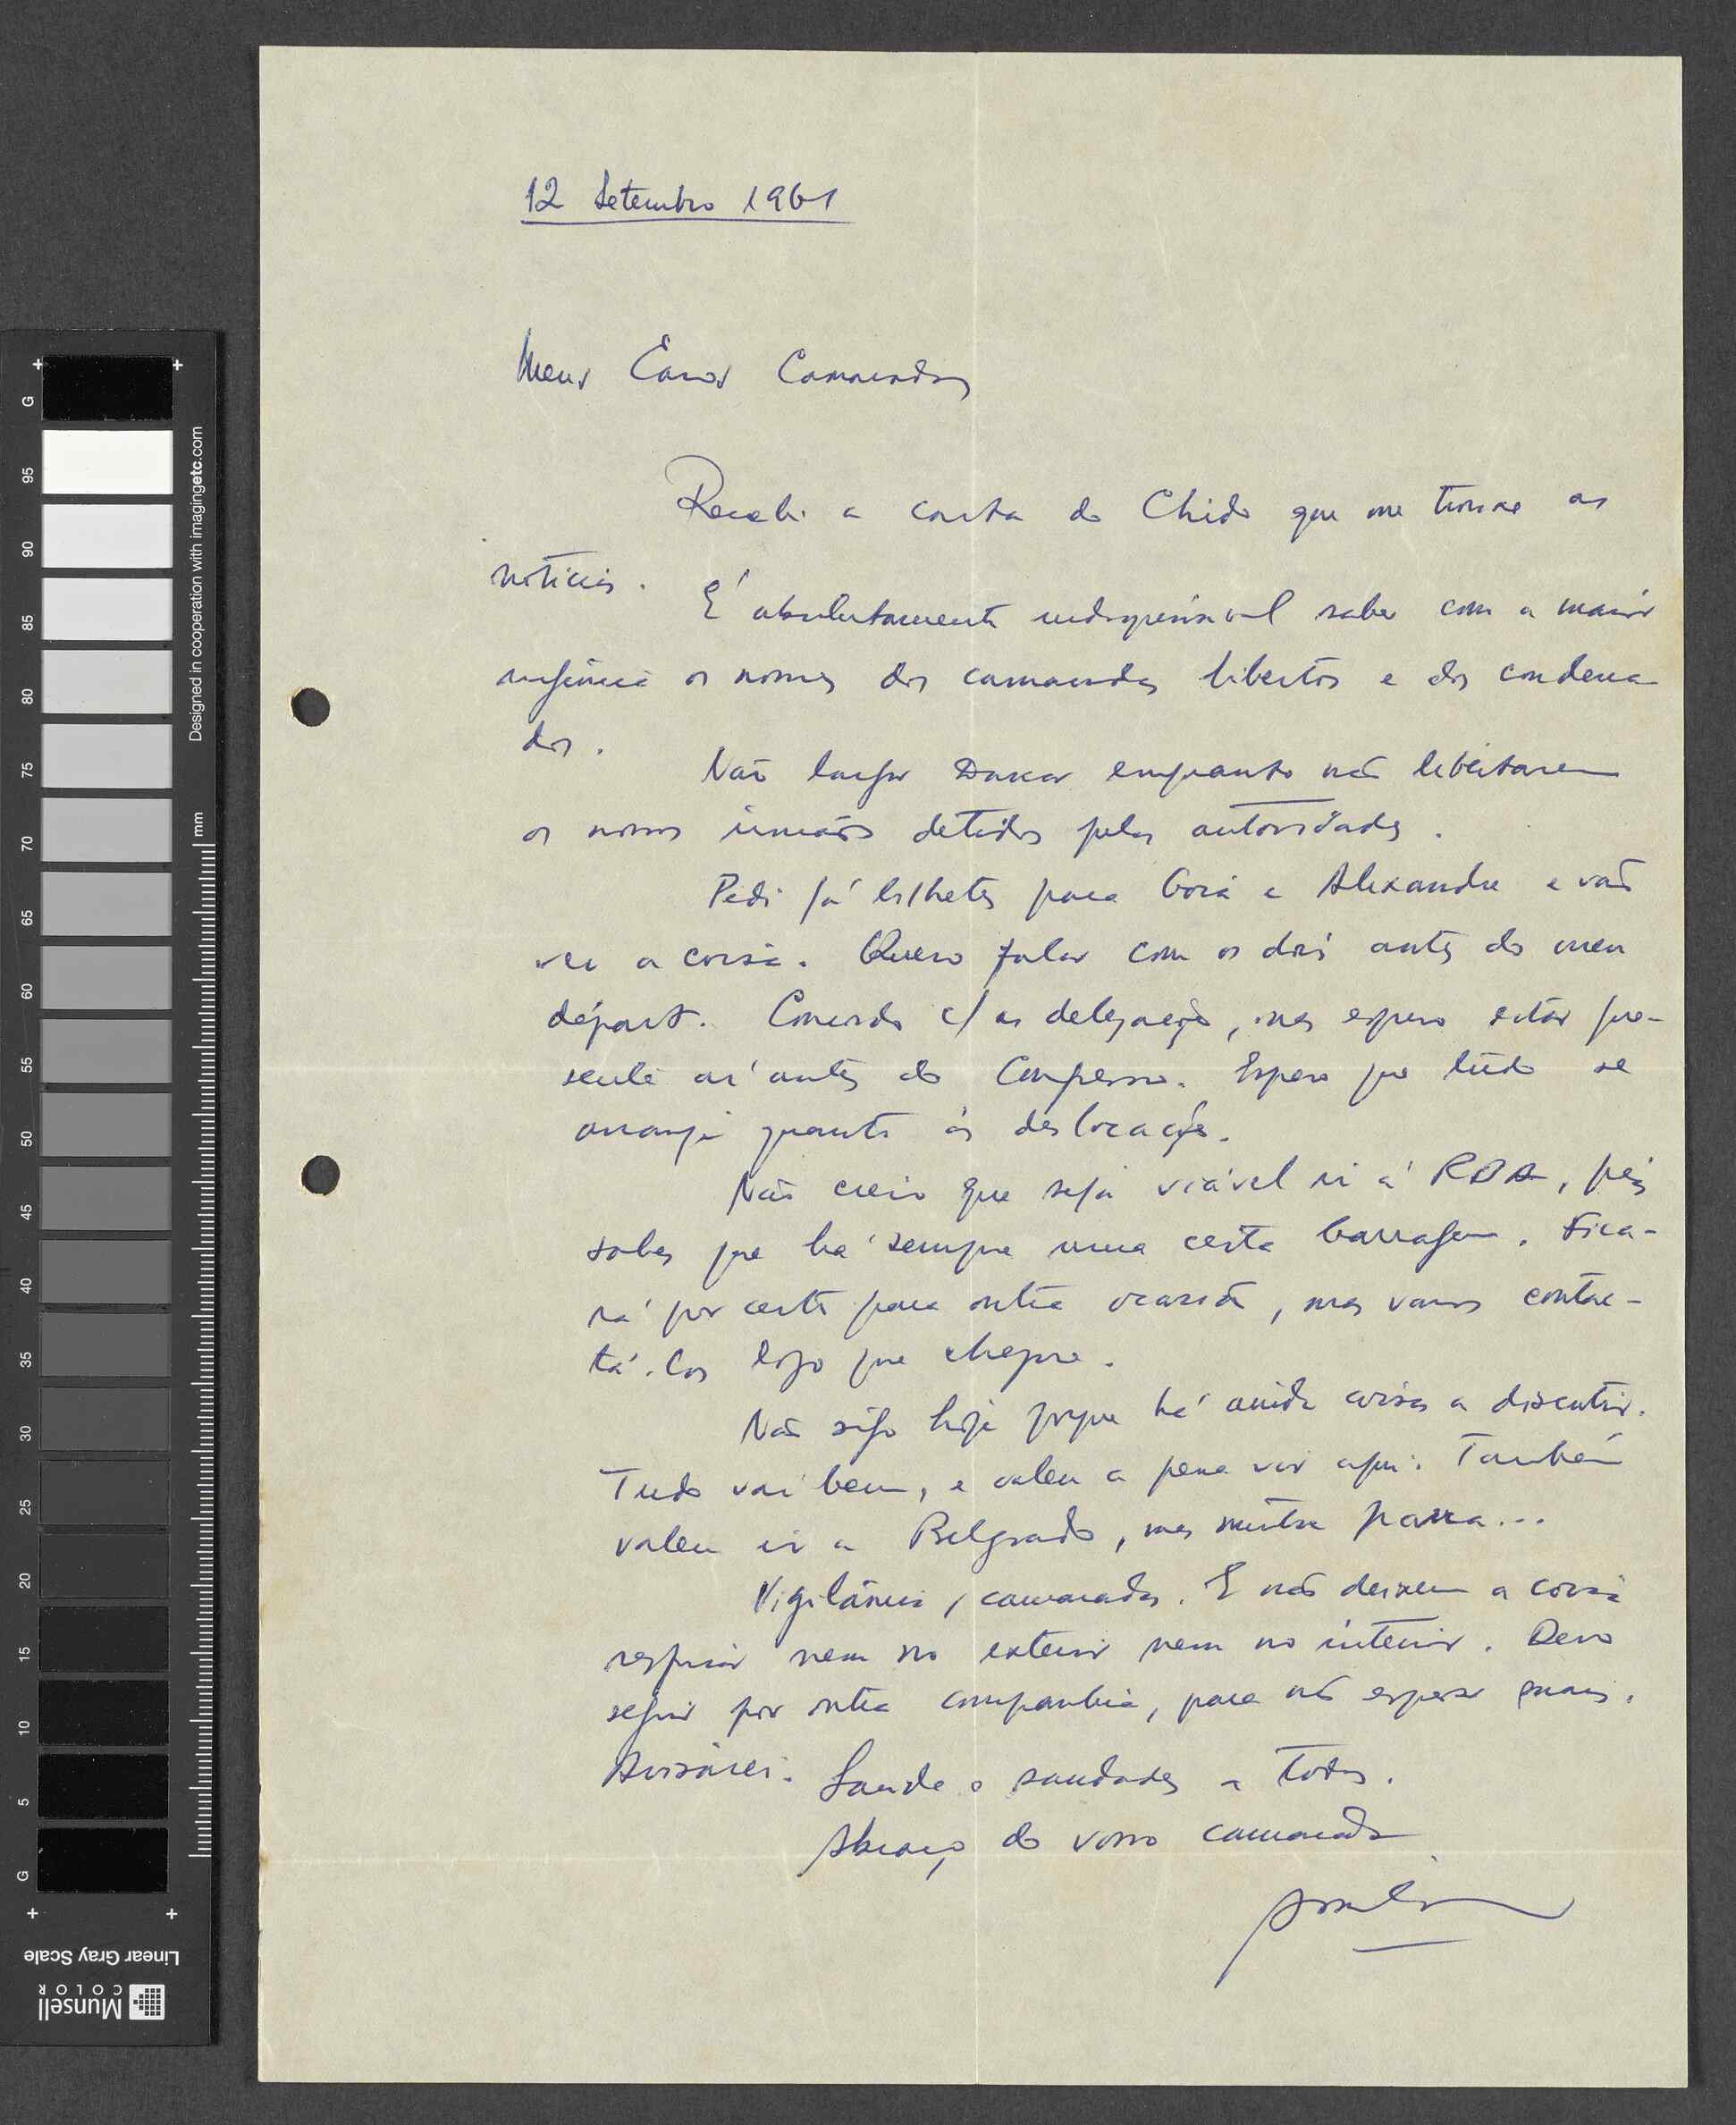 12 Setembro 1961
Meus Caros Camaradas
Recebi a carta do Chido que me trouxe as
notícias.
É absolutamente indispensável saber com a maior
urgência os nomes dos camaradas libertos e dos condena-
dos.
Não largar Dakar enquanto não libertarem
os nossos irmãos detidos pelas autoridades.
Pedi já bilhetes para e Alexandre e vão
ver a coisa. Quero falar com os dois antes do meu
départ. Concordo c/ as delegações, mas espero estar pre-
sente aí antes do Congresso. Espero que tudo se
arranje quanto às deslocações.
Não creio que seja viável ir à RDA, pois
sabes que há sempre uma certa barragem. Fica-
rá por certo para outra ocasião, mas vamos contac-
tá-los logo que chegue.
Não sigo hoje porque há ainda coisas a discutir.
Tudo vai bem, e valeu a pena vir aqui. Também
valeu ir a Belgrado, mas noutra
Vigilância, camaradas. E não deixem a coisa
respirar nem no exterior nem no interior. Devo
seguir por outra companhia, para não esperar mais.
Avisarei. Saúde e saudades a todos.
Abraço do vosso camarada
Designed in cooperation with imagingetc.com
mm
G
95
90
85
80
75
70
65
60
55
50
45
40
35
30
25
20
15
10
5
G
Linear Gray Scale
Munsell
COLOR